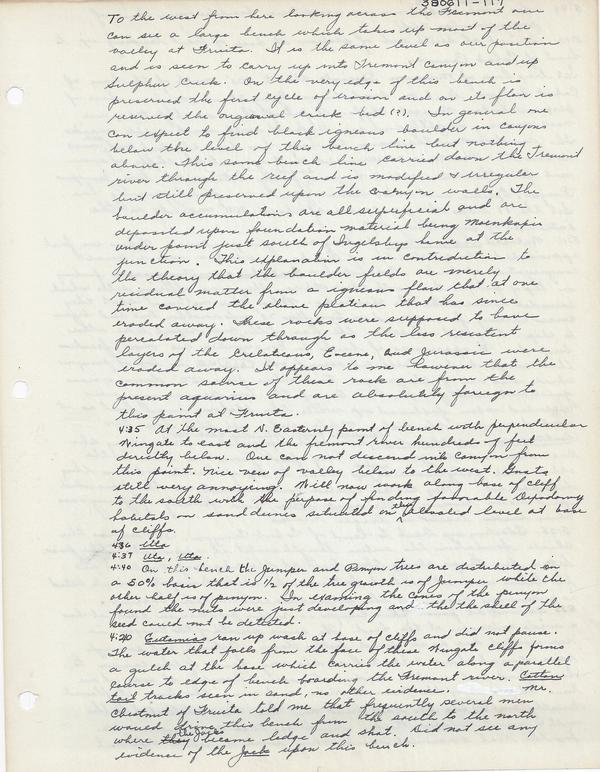 380611-117
To the west from here looking across the Fremont one
can see a large bench which takes up most of the
valley at Fruita. It is the same level as our position
and is seen to carry up into Fremont Canyon and up
Sulphur Creek. On the very edge of this bench is
preserved the first cycle of erosion and on its floor is
reserved the origional creek bed (?). In general one
can expect to find black igneous boulder in canyons
below the level of this bench line but nothing
above. This same bench line carried down the Fremont
river through the reef and is modified & irregular
but still preserved upon the canyon walls. The
boulder accumulations are all superficial and are
deposited upon foundation material being Moenkapi
under point just south of Inglebys home at the
junction. This explanation is in contradiction to
the theory that the boulder fields are merely
residual matter from a igneous flow that at one
time covered the above plateau that has since
eroded away. These rocks were supposed to have
percolated down through as the less resistent
layers of the Cretaceous, Eocene, and Jurassic were
eroded away. It appears to me however that the
common source of these rock are from the
present aquarius and are absolutely foreign to
this point at Fruita.
4:35 At the most N. Easternly point of bench with perpendicular
Wingate to east and the fremont river hundreds of feet
directly below. One can not descend into canyon from
this point. Nice view of valley below to the west. Gnats
still very annoying. Will now work along base of cliff
to the south with the purpose of finding favorable Dipodomy
habitats on sand dunes situated on this elevated level at base
of cliffs.
4:36 Uta
4:37 Uta, Uta.
4:40 On this bench the Juniper and Pinyon trees are distributed on
a 50% basis that is 1/2 of the tree growth is of Juniper while the
other half is pinyon. In examining the cones of the pinyon
found the nuts were just developing and the the shell of the
seed could not be detected.
4:40 Eutamias ran up wash at base of cliffs and did not pause.
The water that falls from the face of these Wingate cliff forms
a gulch at the base which carries the water along a parallel
course to edge of bench boarding the Fremont river. Cotton
tail tracks seen in sand, no other evidence. Mr.
Chestnut of Fruita told me that frequently several men
would drive this bench from the south to the north
where they the Jacks became ledge and shot. Did not see any
evidence of the Jack upon this bench.